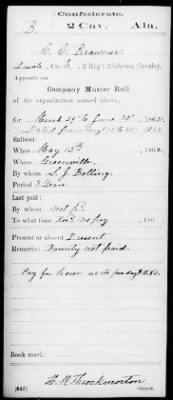 Confederate.
B. 2 Cav. Ala.
C. C. Brawner
Private, Co. E, 2 Reg't Alabama Cavalry.
Appears on
Company Muster Roll
of the organization named above,
for March 29 to June 30, 1862.
Dated
Enlisted:
When May 13th, 186
Where Greenville
By whom S. J. Bolling
Period 3 Years
Last paid:
By whom not pd.
To what time No pay, 186
Present or absent Present
Remarks: Bounty not paid.
Pay for horse
Book mark:
H. W. Throckmorton
(642) Copyist.